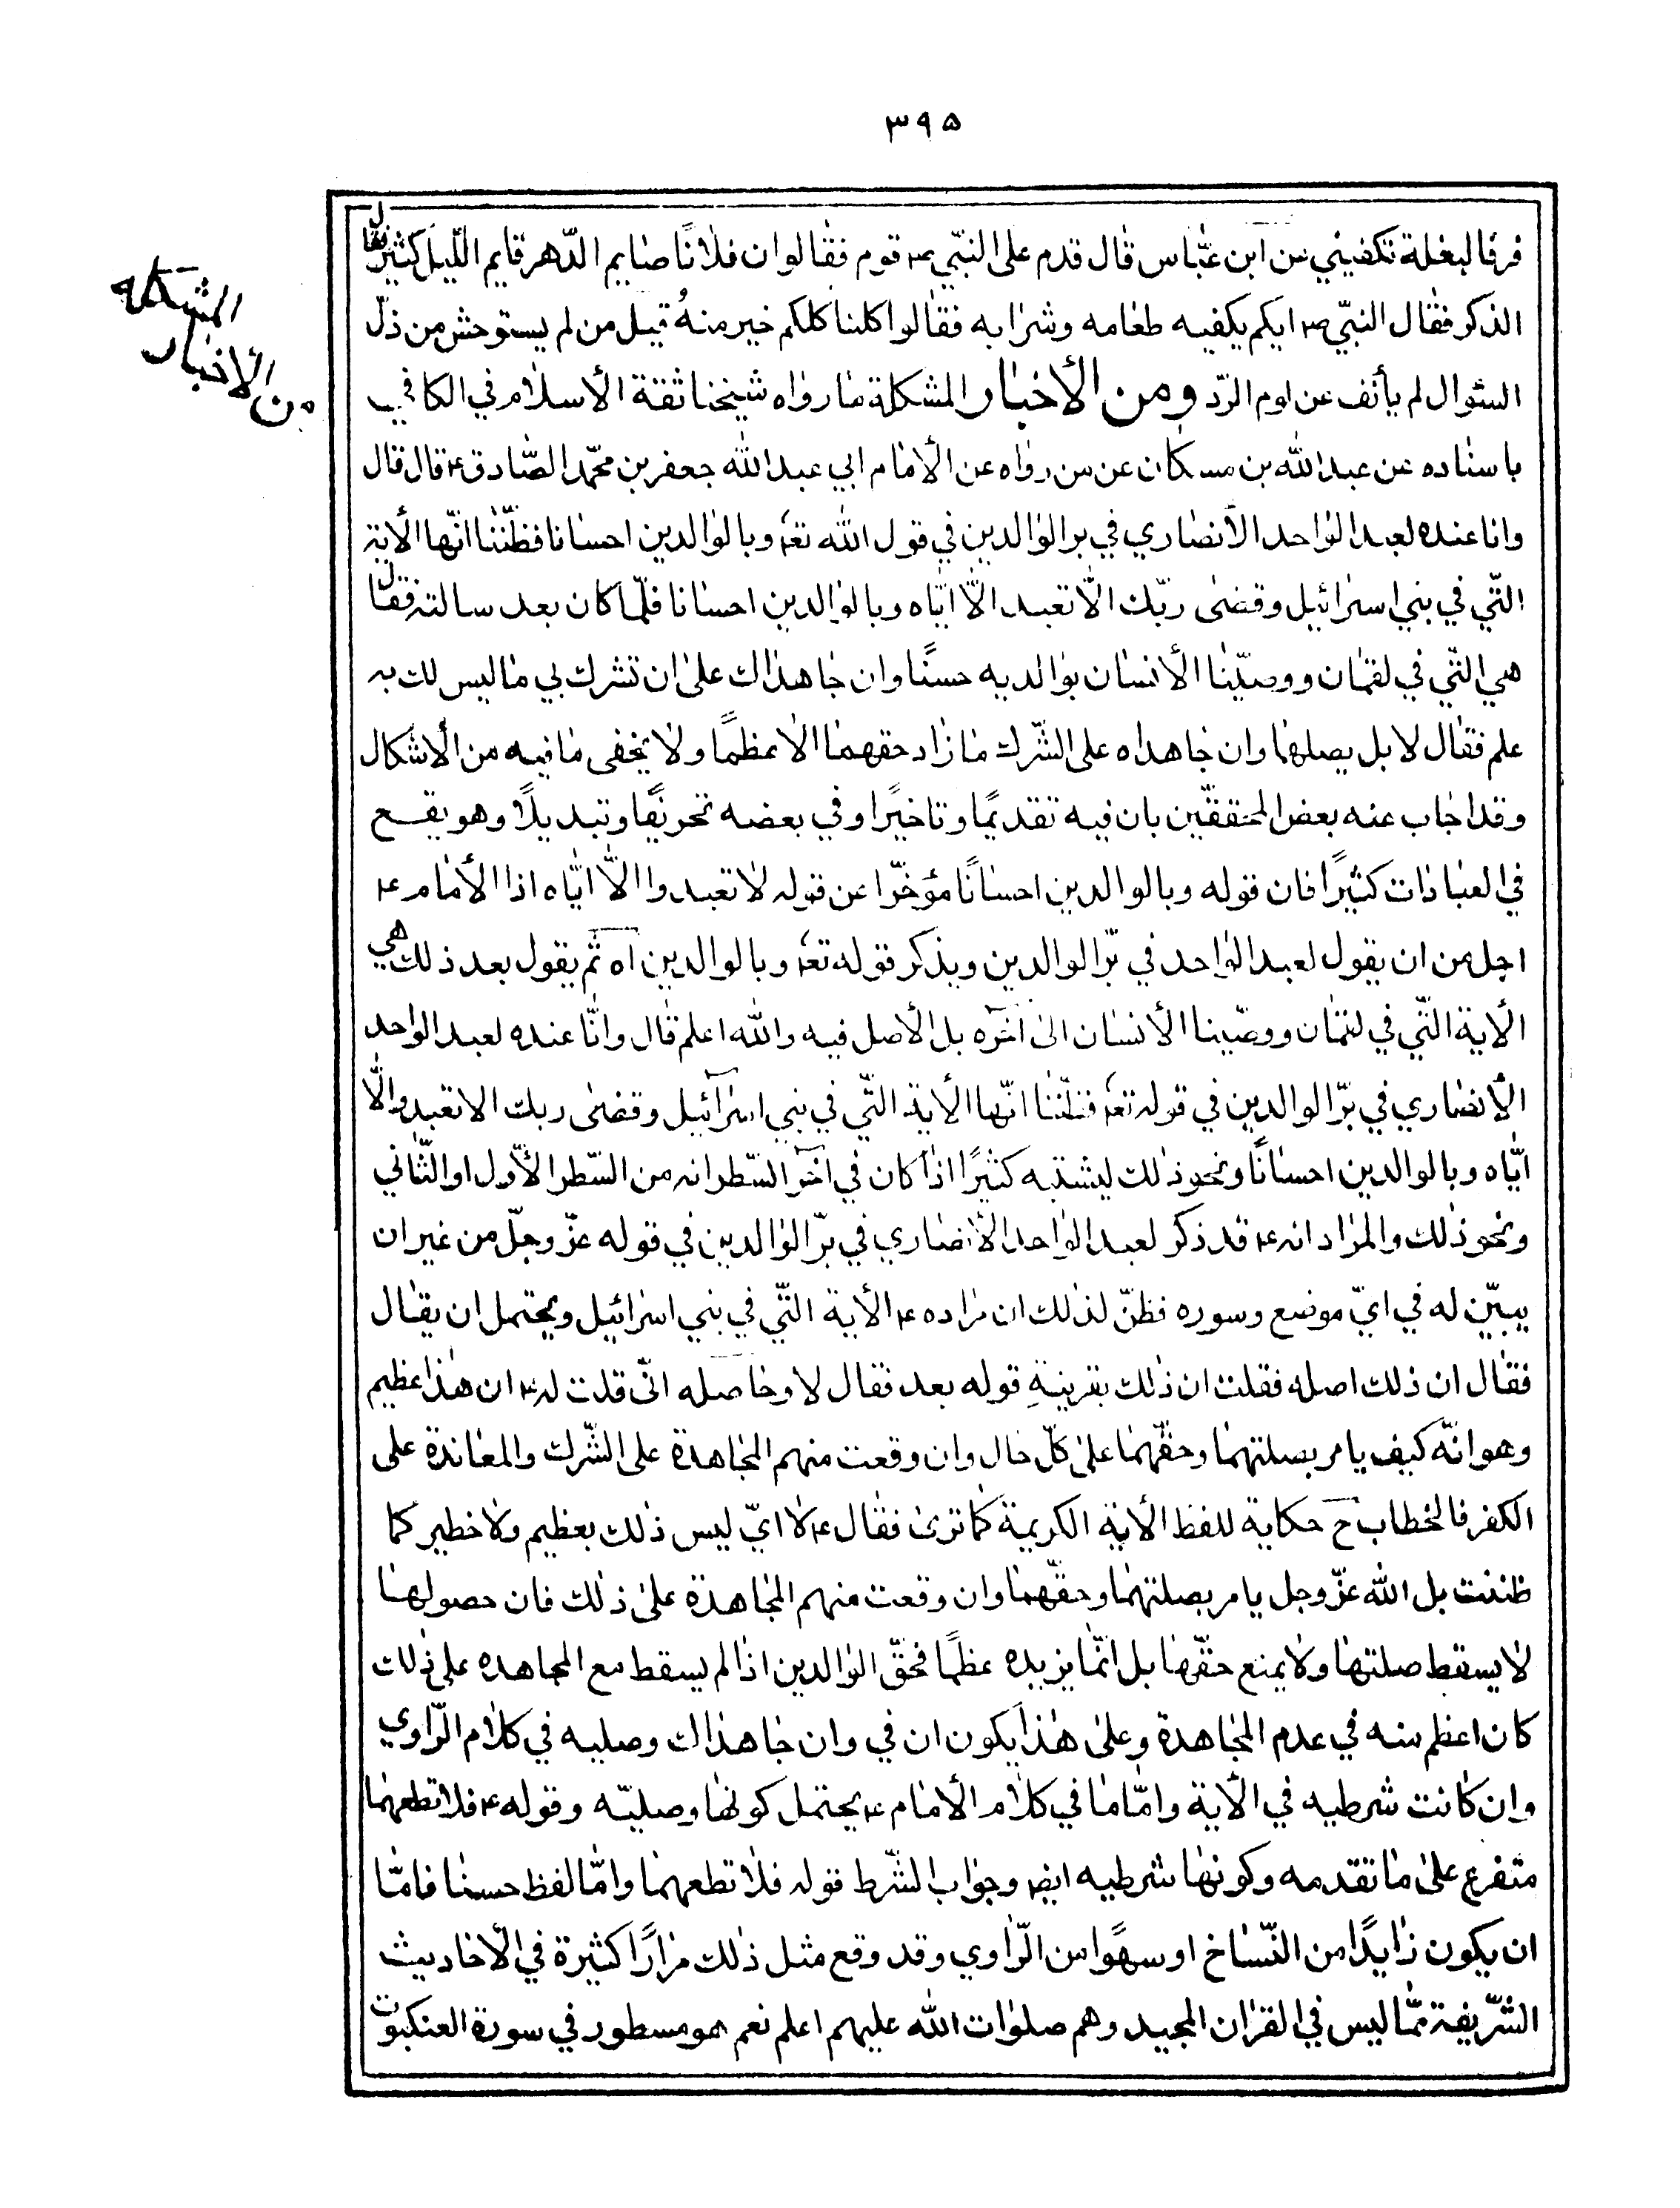 ٣٩٥
فرفا لبغلة تكفيني عن ابن عبّاس قال قدم على النبّي ص قوم فقالوا ان فلانًا صايم الدّهر قايم اللّيل كثير
الذكر فقال النبيّ ص ايكم يكفيه طعامه وشرابه فقالوا كلنا كلكم خير منهُ قيل من لم يستوحش من ذلّ
السّؤال لم يأنف عن لوم الرّد ومن الأخبار المشكلة ما رواه شيخنا ثقة الأسلام في الكافي
باسناده عن عبد الله بن مسكان عن من رواه عن الأمام ابي عبد الله جعفر بن محمّد الصّادق ع قال قال
وانا عنده لعبد الواحد الأنصاري في بر الوالدين في قول الله تع وبالوالدين احسانا فظنّنا انّها الأية
التّي في بني اسرائيل وقضى ربّك الّا تعبد الّا ايّاه وبالوالدين احسانا فلمّا كان بعد سالته فقال
هي التّي في لقمان ووصّينا الأنسان بوالديه حسنًا وان جاهداك على ان تشرك بي ما ليس لك به
علم فقال لا بل يصلهما وان جاهداه على الشّرك ما زاد حقهما الا عظمًا ولا يخفى ما فيه من الأشكال
وقد اجاب عنه بعض المحققّين بان فيه تقديمًا وتاخيرًا وفي بعضه تحريفًا وتبديلًا وهو يقع
في العبادات كثيرًا فان قوله وبالوالدين احسانًا مؤخّرا عن قوله لا تعبدوا الّا ايّاه اذا الأمام ع
اجل من ان يقول لعبد الواحد في برّ الوالدين ويذكر قوله تع وبالوالدين اه ثم يقول بعد ذلك هي
الأية التّي في لقمان ووصّينا الأنسان الى اخره بل الأصل فيه والله اعلم قال وانّا عنده لعبد الواحد
الأنصاري في برّ الوالدين في قوله تع فظنّنا انّها الأية التّي في بني اسرائيل وقضى ربك الا تعبدوا الّا
ايّاه وبالوالدين احسانًا ونحو ذلك ليشتبه كثيرًا اذا كان في اخر السّطر انه من السّطر الأوّل او الثّاني
ونحو ذلك والمراد انه ع قد ذكر لعبد الواحد الأنصاري في برّ الوالدين في قوله عزّ وجلّ من غير ان
يبيّن له في ايّ موضع وسوره فظنّ لذلك ان مراده ع الأية التّي في بني اسرائيل ويحتمل ان يقال
فقال ان ذلك اصله فقلت ان ذلك بقرينةِ قوله بعد فقال لا وحاصله انّي قلت له ع ان هذا عظيم
وهو انّه كيف يامر بصلتهما وحقّهما على كلّ حال وان وقعت منهم المجاهدة على الشّرك والمعاندة على
الكفر فالخطاب ح حكاية للفظ الأية الكريمة كما ترى فقال ع لا ايّ ليس ذلك بعظيم ولا خطير كما
ظننت بل الله عزّ وجل يامر بصلتهما وحقّهما وان وقعت منهم المجاهدة على ذلك فان حصولها
لا يسقط صلتها ولا يمنع حقّها بل انّما يزيده عظمًا فحقّ الوالدين اذا لم يسقط مع المجاهده على ذلك
كان اعظم منه في عدم المجاهدة وعلى هذا يكون ان في وان جاهداك وصليه في كلام الرّاوي
وان كانت شرطيه في الأية وامّا ما في كلام الأمام ع يحتمل كونها وصليّه وقوله ع فلا تطعهما
متفرع على ما تقدمه وكونها شرطيه ايض وجواب الشّرط قوله فلا تطعهما وامّا لفظ حسنا فامّا
ان يكون زايدًا من النّسّاخ او سهوًا من الرّاوي وقد وقع مثل ذلك مرارًا كثيرة في الأحاديث
الشّريفة ممّا ليس في القران المجيد وهم صلوات الله عليهم اعلم نعم هو مسطور في سورة العنكبوت
من الأخبار
المشكله